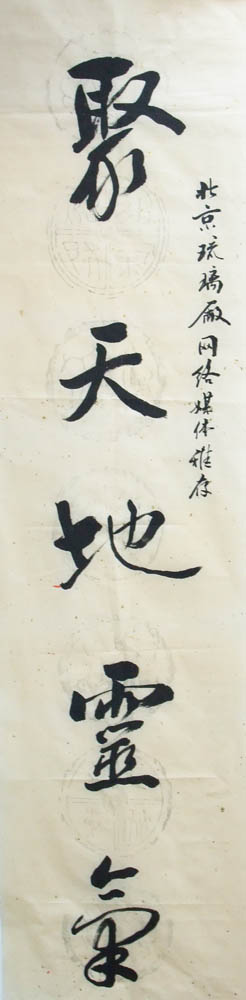 北京琉璃厰网络媒体雅存
聚天地靈氣